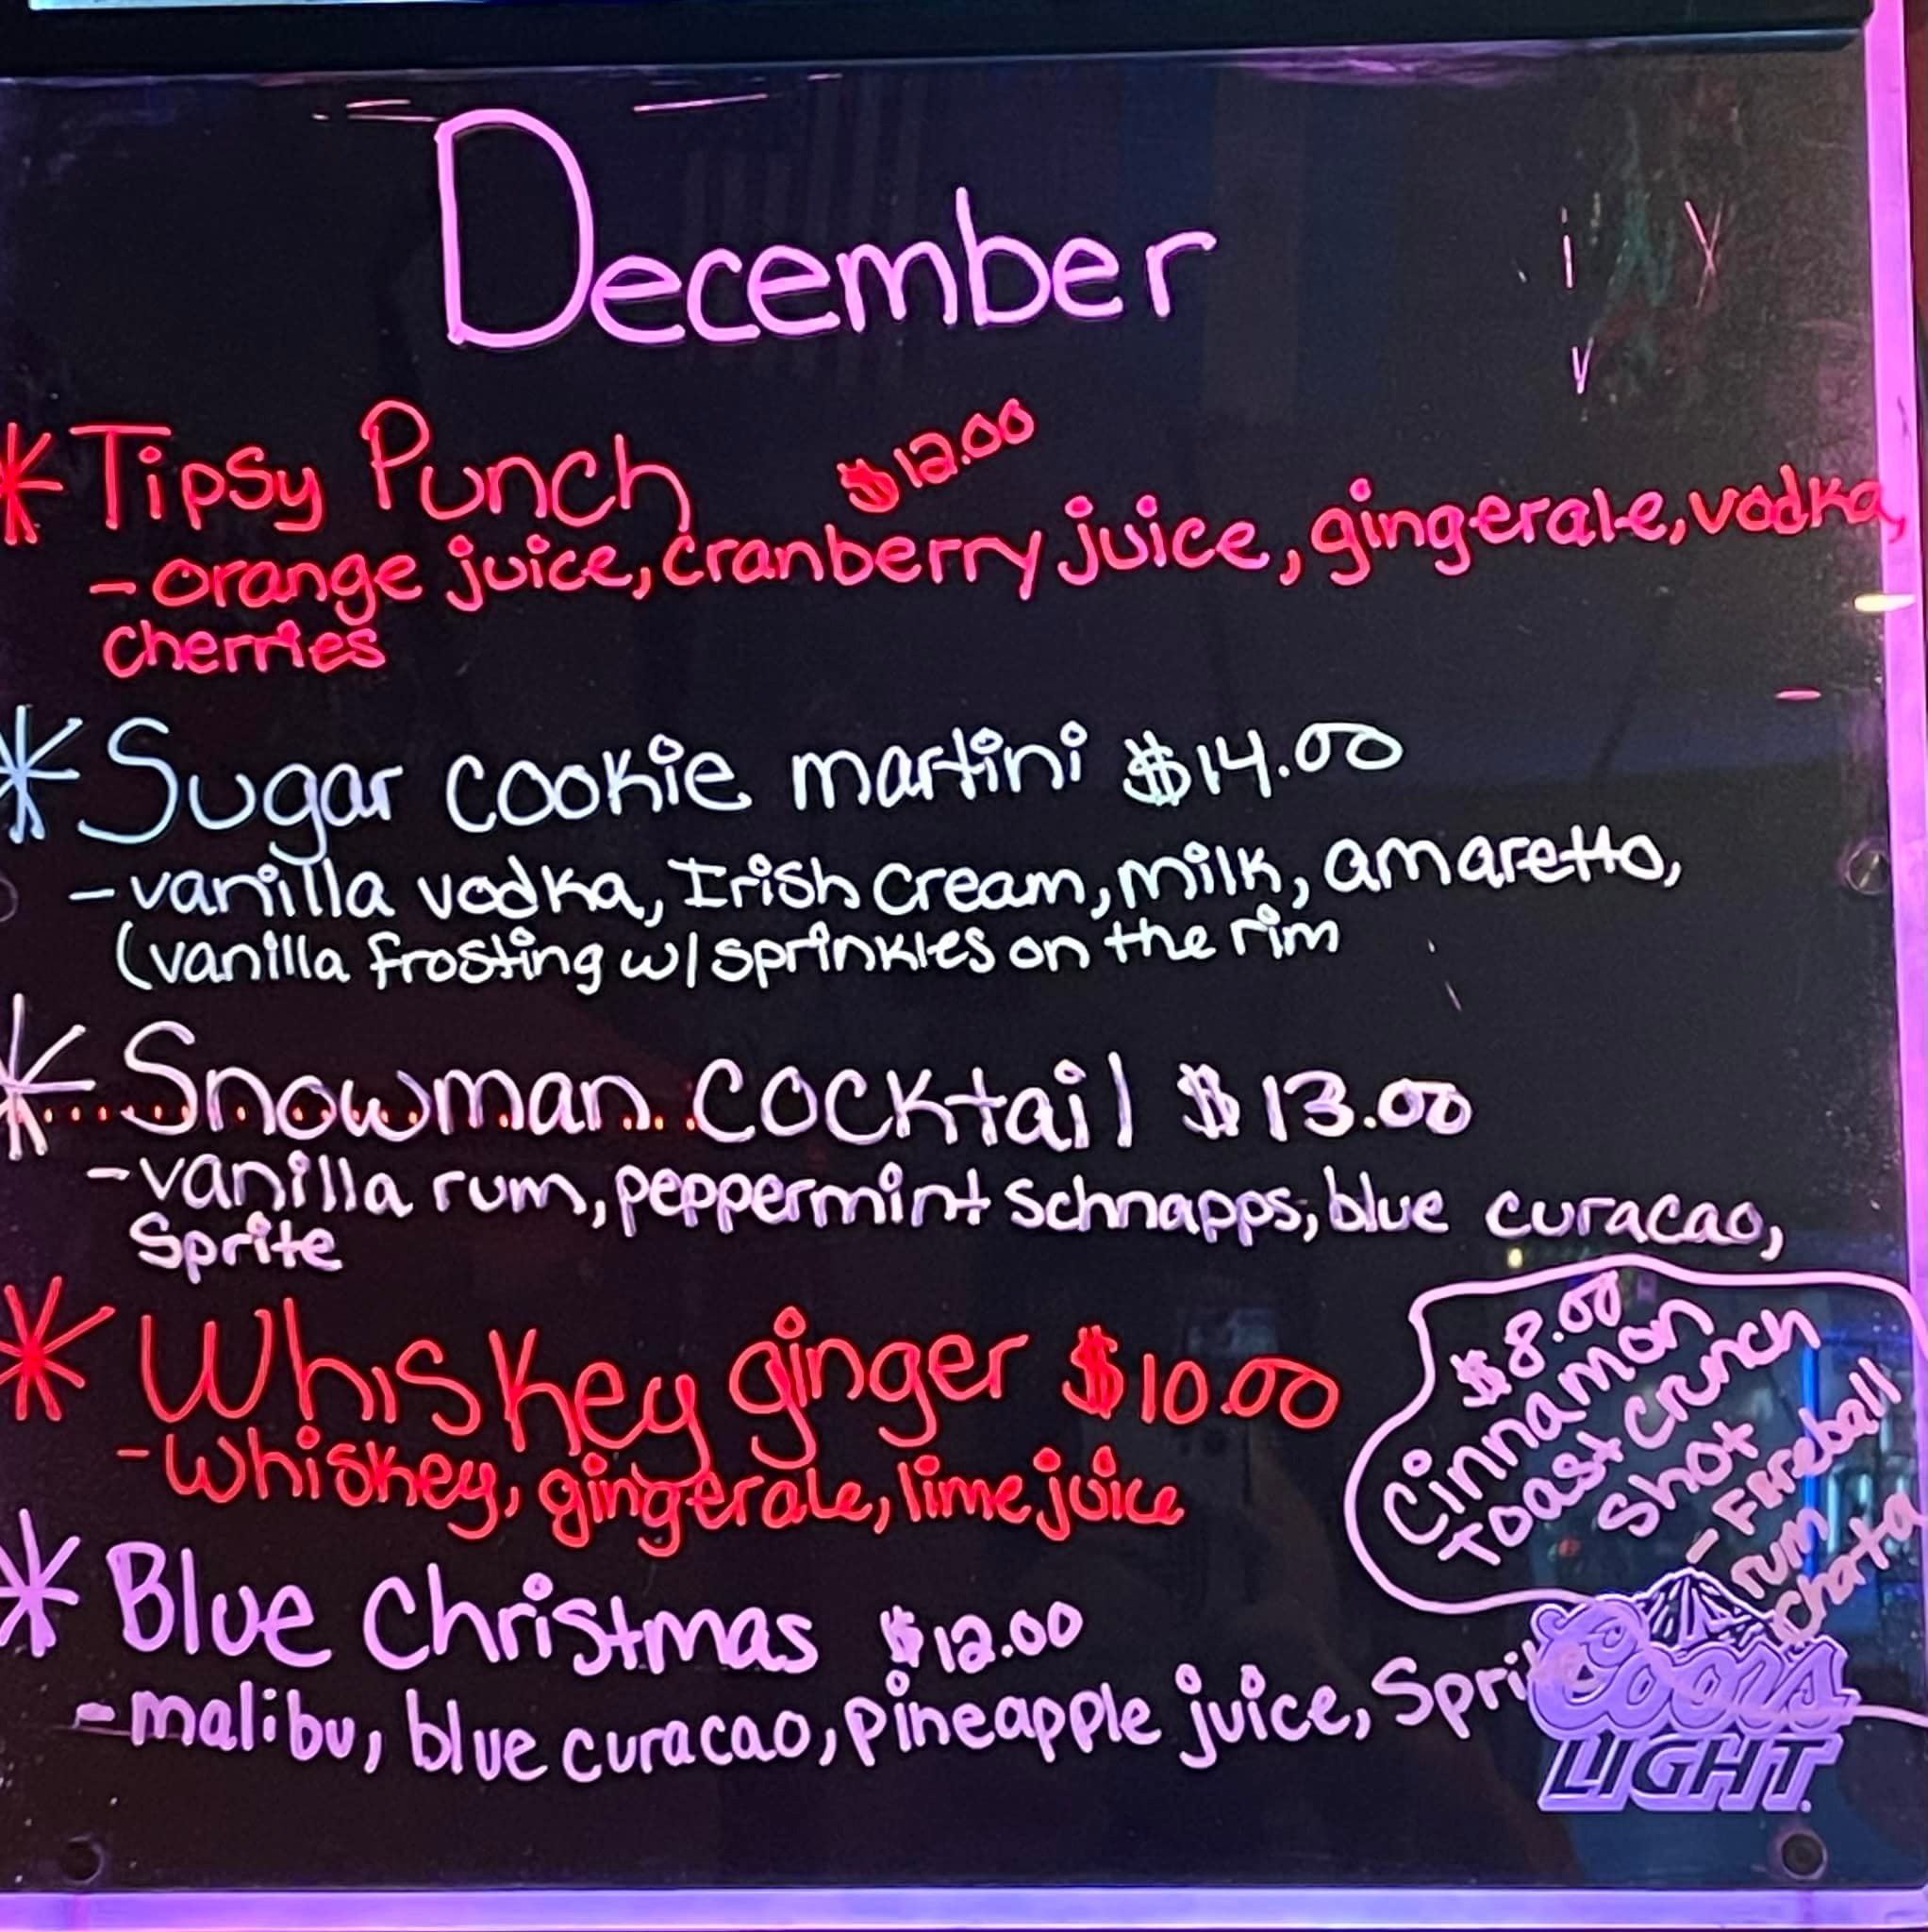 December
* Tipsy Punch $12.00
- orange juice, cranberry juice, gingerale, vodka,
cherries
* Sugar cookie martini $14.00
- vanilla vodka, Irish cream, milk, amaretto,
(vanilla frosting w/ sprinkles on the rim
* Snowman cocktail $13.00
- vanilla rum, peppermint schnapps, blue curacao,
Sprite
* Whiskey ginger $10.00
- Whiskey, gingerale, lime juice
$8.00
Cinnamon
Toast Crunch
shot
- Fireball
rum
chata
* Blue Christmas $12.00
- malibu, blue curacao, pineapple juice, Sprite
Coors
LIGHT